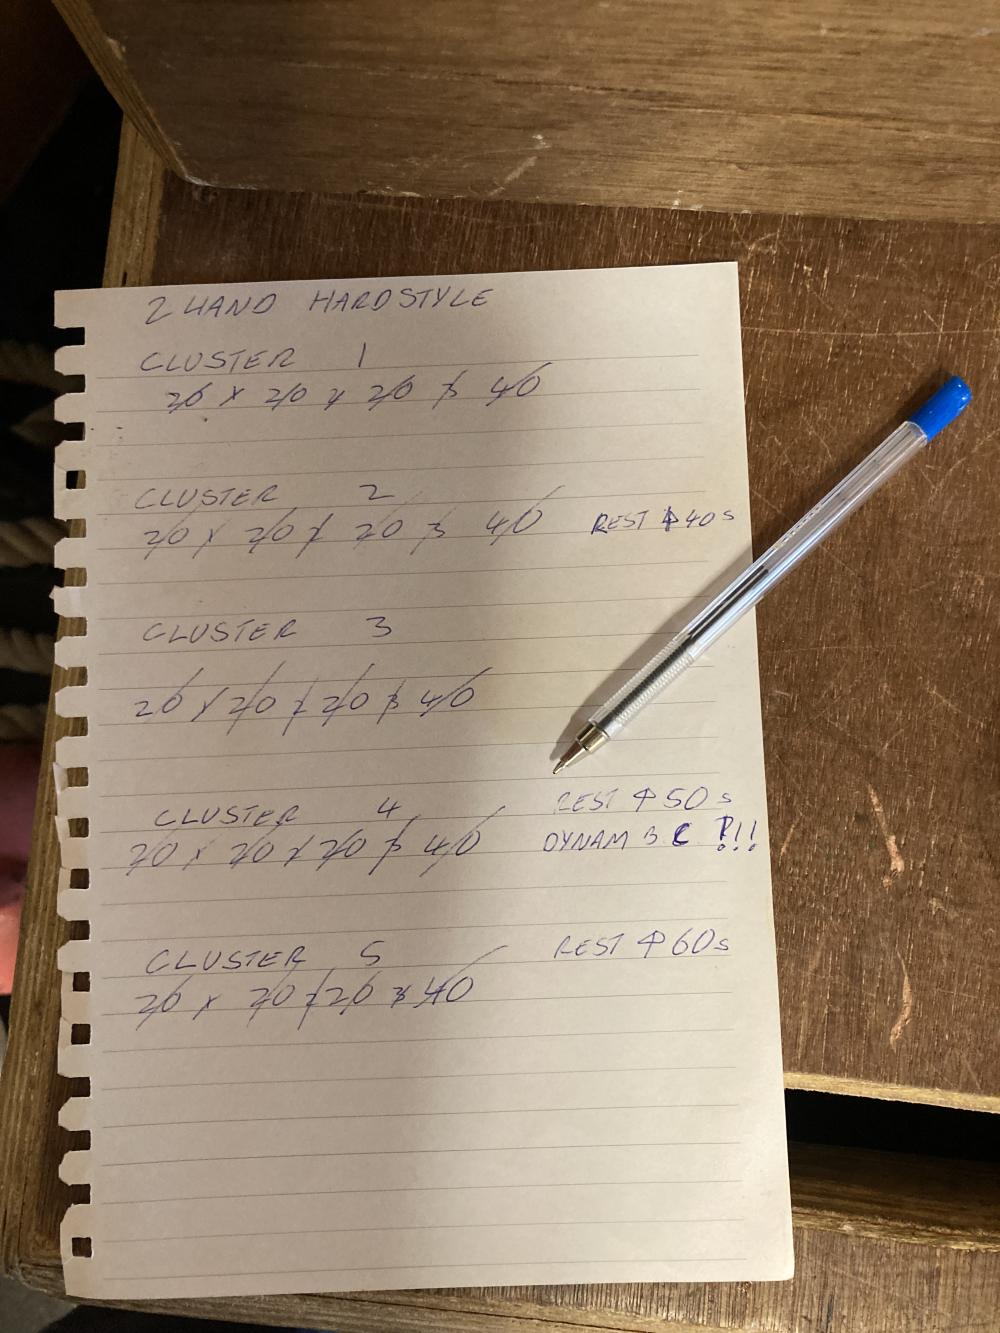 2 HAND HARDSTYLE
CLUSTER 1
20 x 20 x 20 x 40
CLUSTER 2
20 x 20 x 20 x 40 REST ↑40s
CLUSTER 3
20 x 20 x 20 x 40
CLUSTER 4 REST ↑50s
20 x 20 x 20 x 40 DYNAM3C !!!
CLUSTER 5 REST ↑60s
20 x 20 x 20 x 40